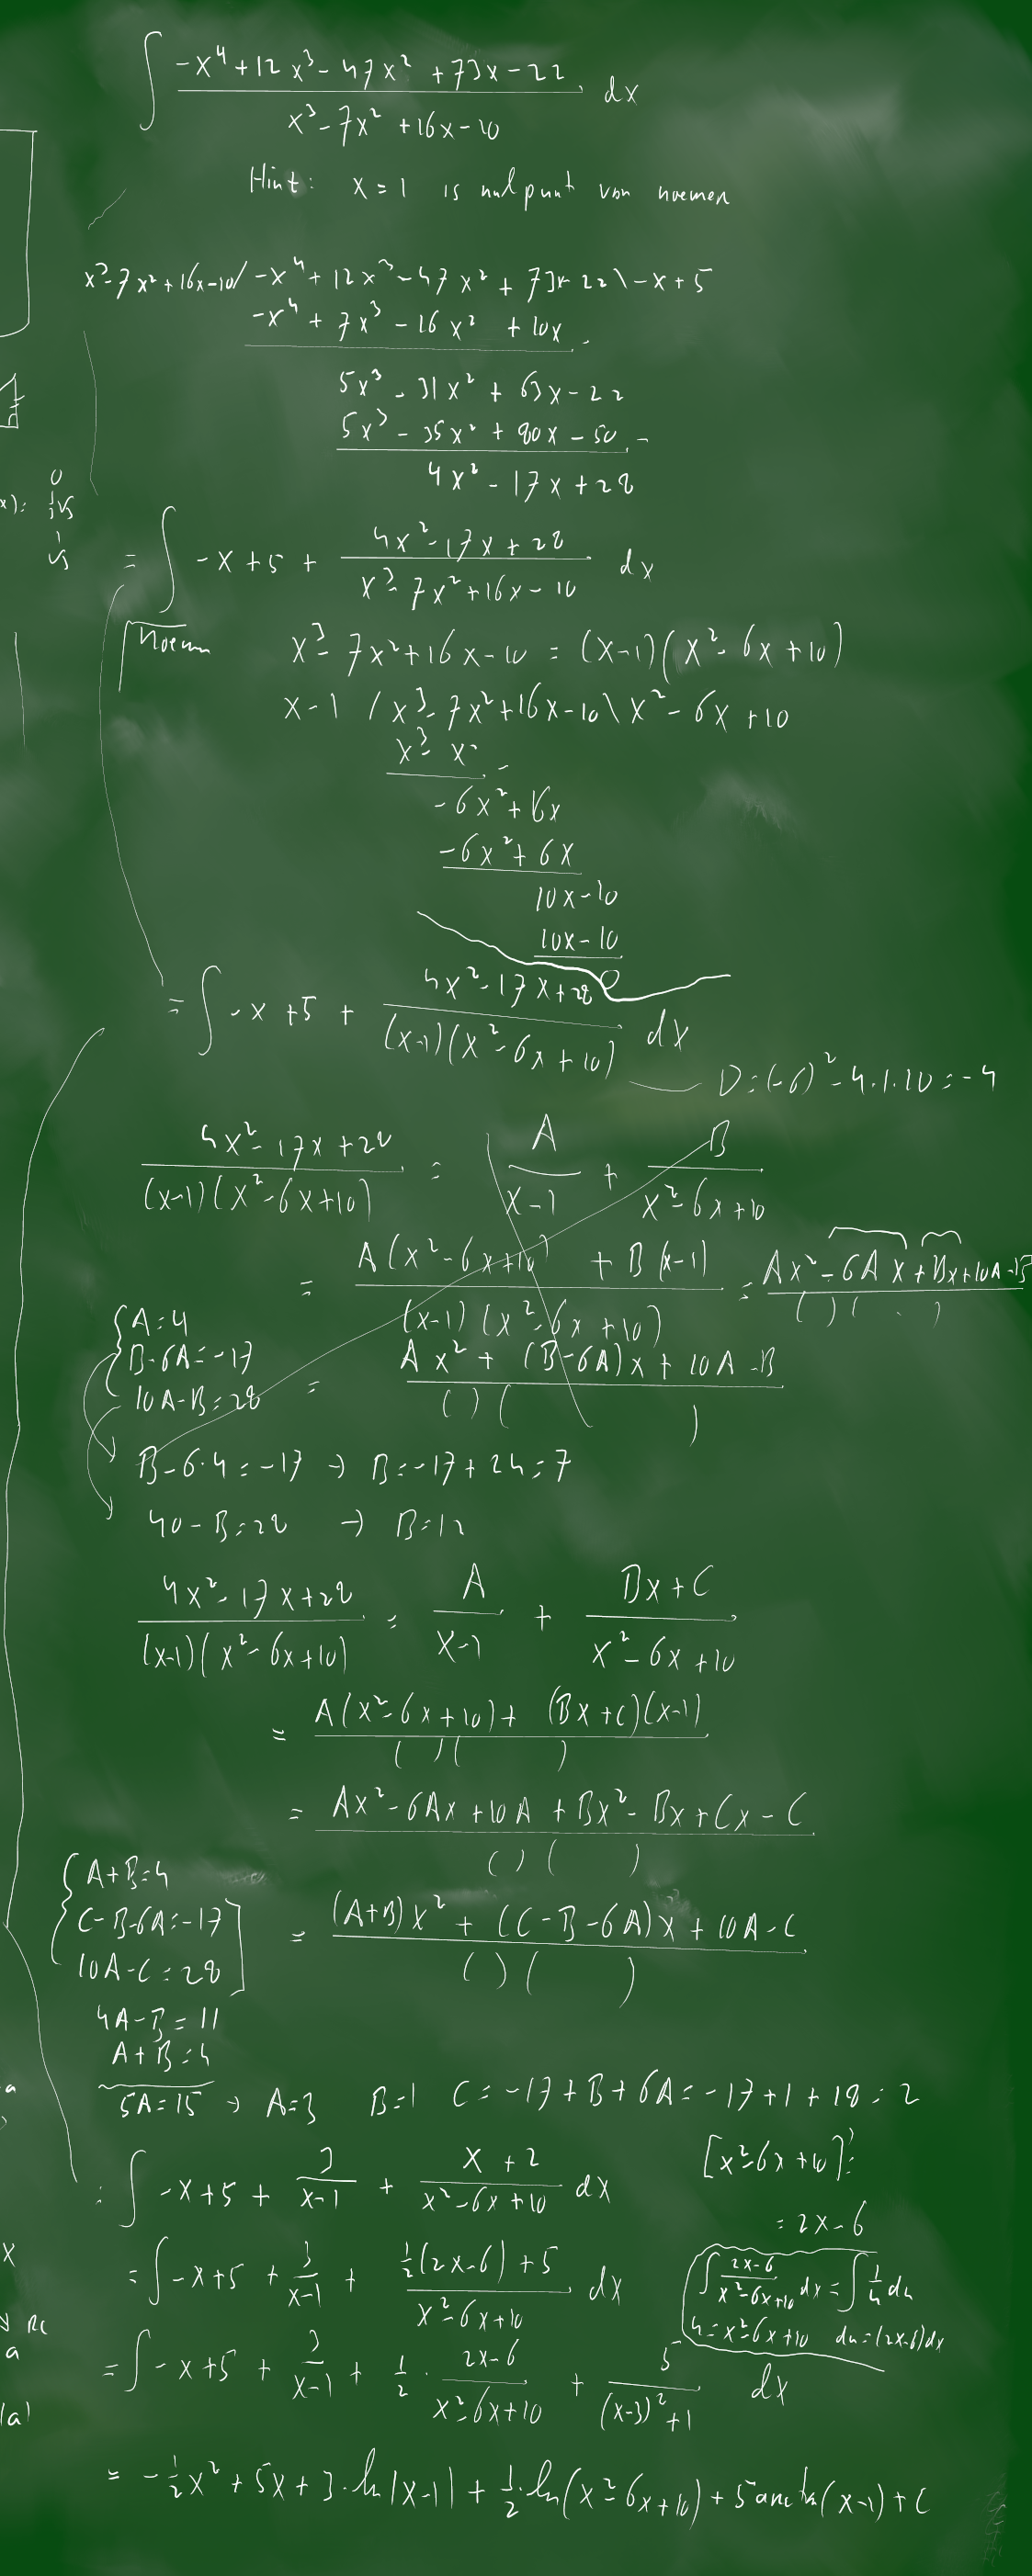 ∫ (-x⁴ + 12x³ - 47x² + 73x - 22)/(x³ - 7x² + 16x - 10) dx
Hint: x = 1 is nulpunt van noemer
x³ - 7x² + 16x - 10 / -x⁴ + 12x³ - 47x² + 73x - 22 \ -x + 5
-x⁴ + 7x³ - 16x² + 10x -
5x³ - 31x² + 63x - 22
5x³ - 35x² + 80x - 50 -
4x² - 17x + 28
= ∫ -x + 5 + (4x² - 17x + 28)/(x³ - 7x² + 16x - 10) dx
Noemer x³ - 7x² + 16x - 10 = (x-1)(x² - 6x + 10)
x - 1 / x³ - 7x² + 16x - 10 \ x² - 6x + 10
x³ - x² -
-6x² + 16x
-6x² + 6x
10x - 10
10x - 10
0
= ∫ -x + 5 + (4x² - 17x + 28)/((x-1)(x² - 6x + 10)) dx
D = (-6)² - 4·1·10 = -4
(4x² - 17x + 28)/((x-1)(x² - 6x + 10)) = A/(x-1) + B/(x² - 6x + 10)
= (A(x² - 6x + 10) + B(x-1))/((x-1)(x² - 6x + 10)) = (Ax² - 6Ax + Bx + 10A - B)/(( )( ))
{ A = 4
B - 6A = -17
10A - B = 28
= (Ax² + (B-6A)x + 10A - B)/(( )( ))
B - 6·4 = -17 → B = -17 + 24 = 7
40 - B = 28 → B = 12
(4x² - 17x + 28)/((x-1)(x² - 6x + 10)) = A/(x-1) + (Bx + C)/(x² - 6x + 10)
= (A(x² - 6x + 10) + (Bx + C)(x-1))/(( )( ))
= (Ax² - 6Ax + 10A + Bx² - Bx + Cx - C)/(( )( ))
{ A + B = 4
C - B - 6A = -17
10A - C = 28
= ((A+B)x² + (C - B - 6A)x + 10A - C)/(( )( ))
4A - B = 11
A + B = 4
5A = 15 → A = 3 B = 1 C = -17 + B + 6A = -17 + 1 + 18 = 2
= ∫ -x + 5 + 3/(x-1) + (x + 2)/(x² - 6x + 10) dx
[x² - 6x + 10]' =
= 2x - 6
= ∫ -x + 5 + 3/(x-1) + (½(2x-6) + 5)/(x² - 6x + 10) dx
∫ (2x-6)/(x² - 6x + 10) dx = ∫ 1/u du
u = x² - 6x + 10 du = (2x-6)dx
= ∫ -x + 5 + 3/(x-1) + ½ · (2x-6)/(x² - 6x + 10) + 5/((x-3)² + 1) dx
= -½x² + 5x + 3·ln|x-1| + ½·ln(x² - 6x + 10) + 5 arctan(x-1) + C